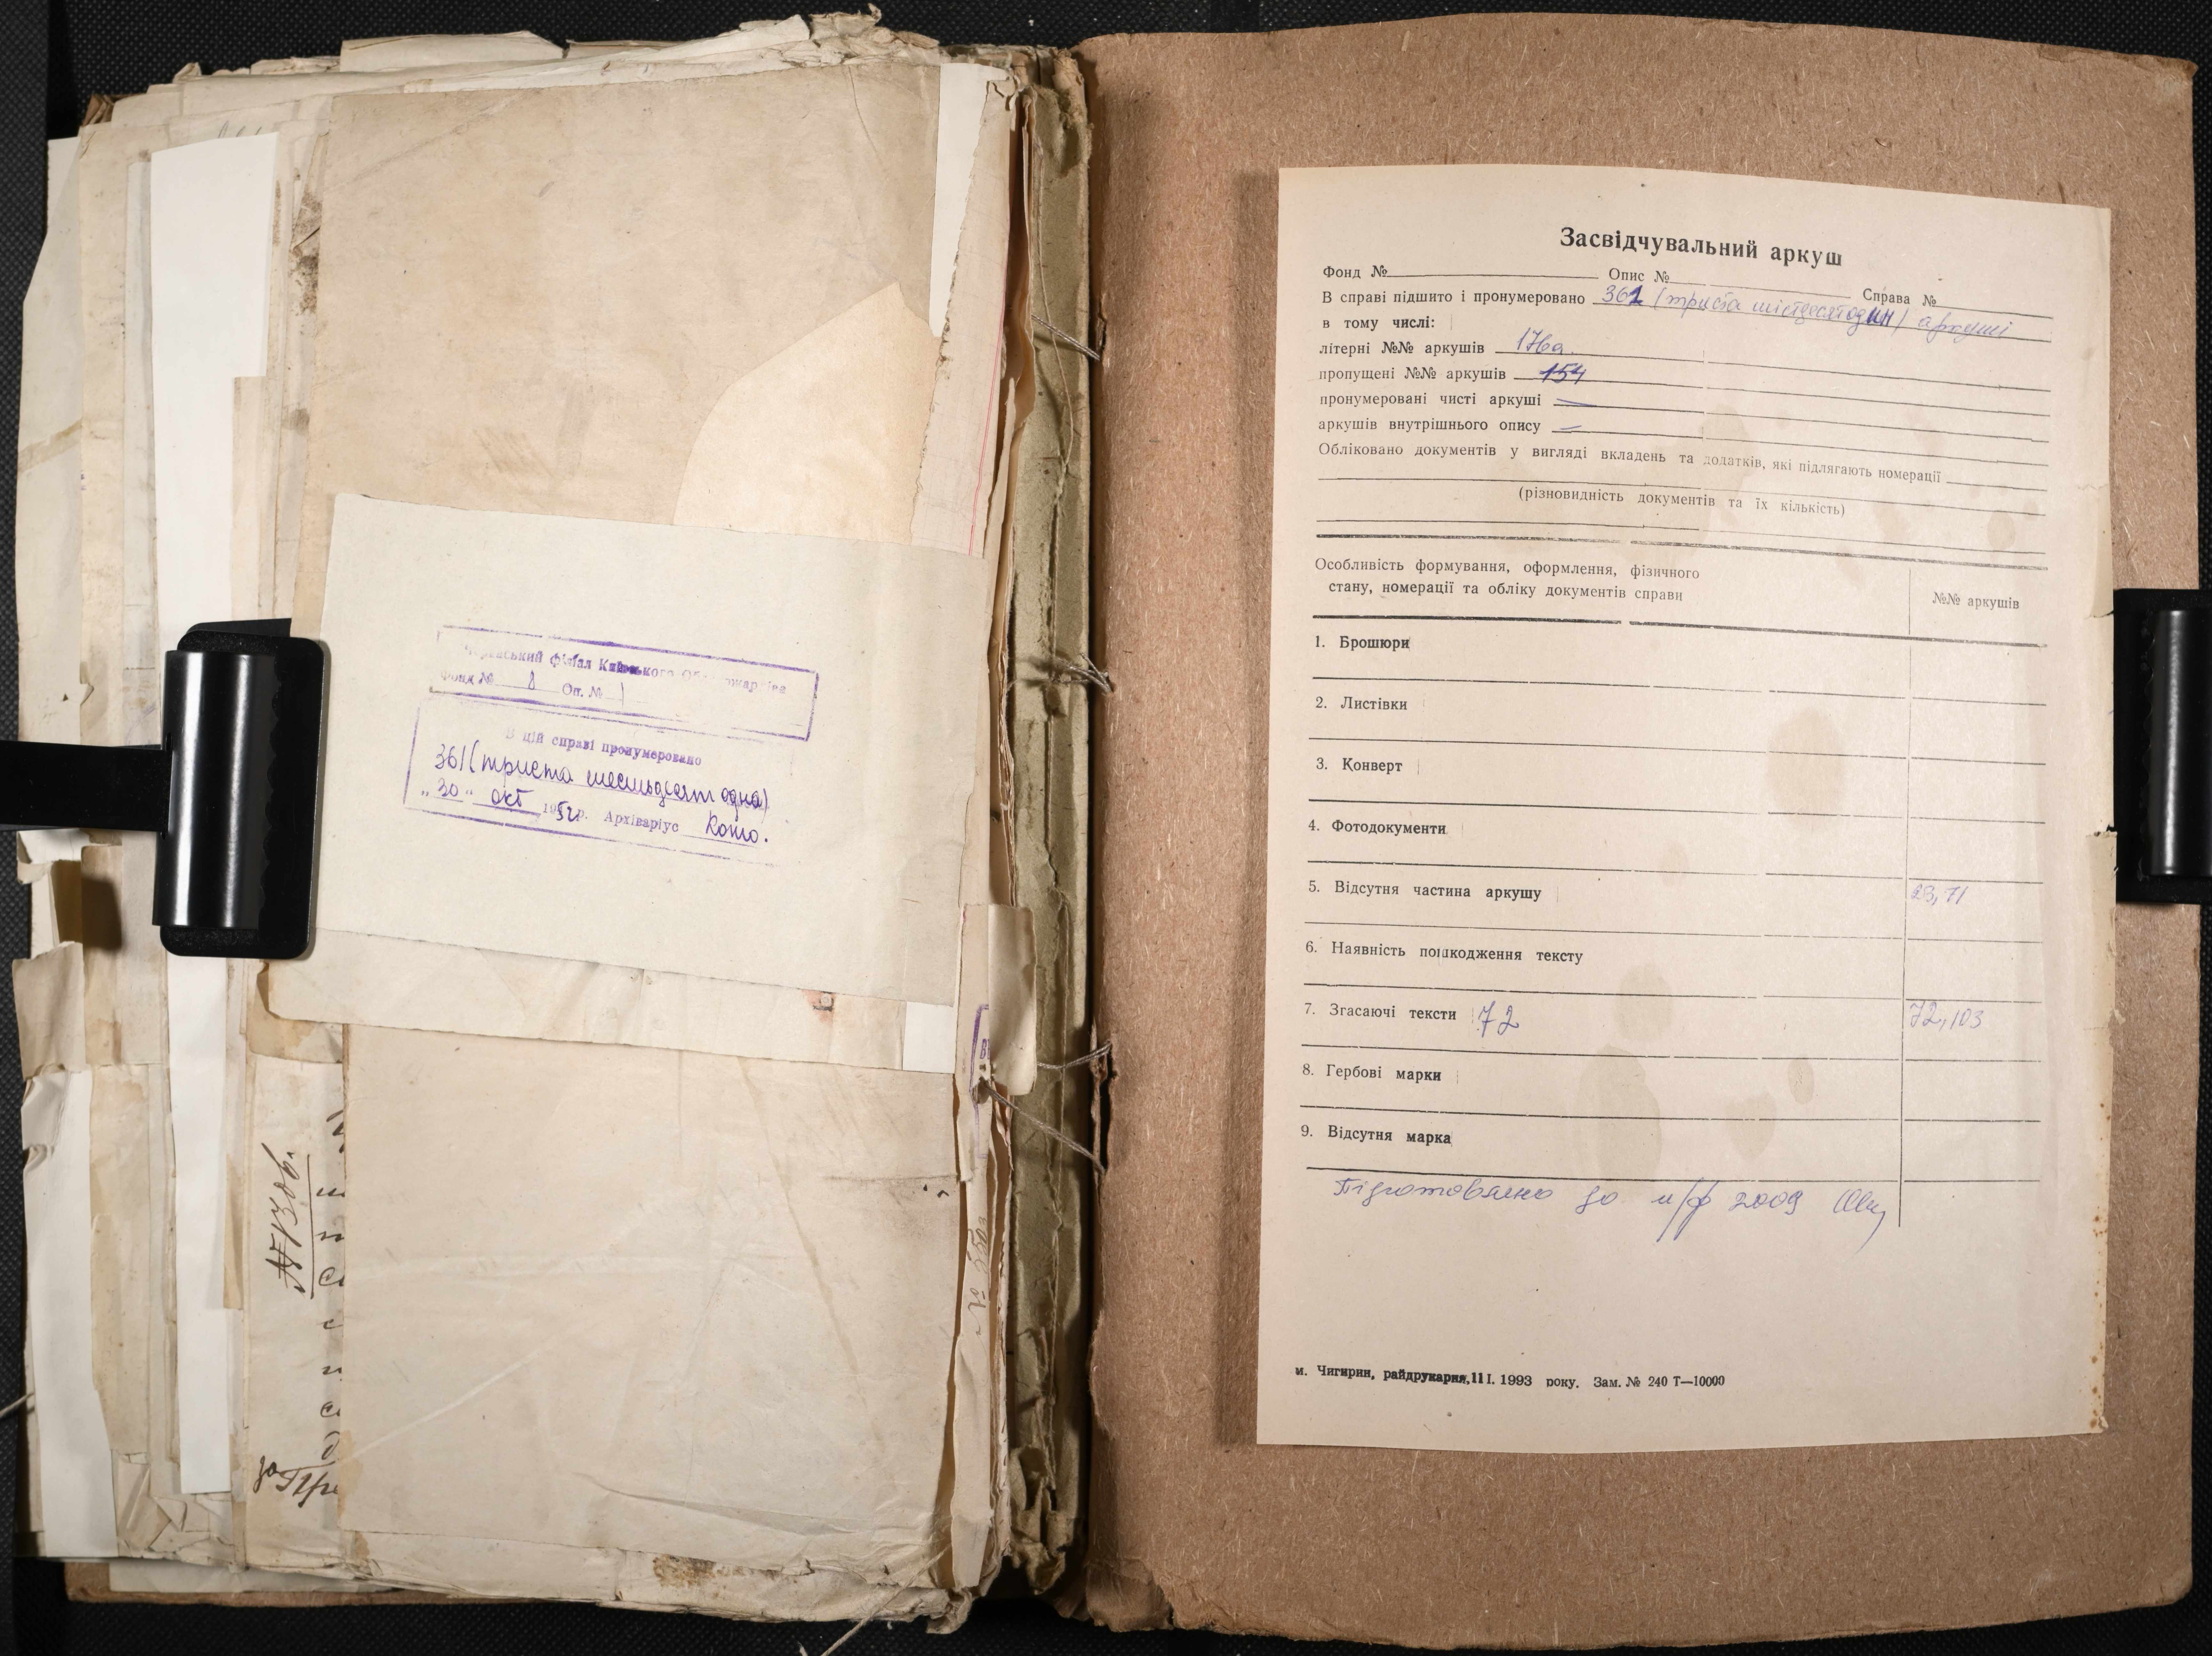 філал Київського
Фонд № 8 Оп. № 1
В цій справі пронумеровано
361 (триста шестьдесят одна)
„30" окт 1952 р. Архіваріус
№ 73 об.
Засвідчувальний аркуш
Фонд № Опис № Справа №
В справі підшито і пронумеровано 361 (триста шістдесят один) аркуші
в тому числі:
літерні №№ аркушів 176а
пропущені №№ аркушів 154
пронумеровані чисті аркуші —
аркушів внутрішнього опису —
Обліковано документів у вигляді вкладень та додатків, які підлягають номерації
(різновидність документів та їх кількість)
Особливість формування, оформлення, фізичного
стану, номерації та обліку документів справи
№№ аркушів
1. Брошюри
2. Листівки
3. Конверт
4. Фотодокументи
5. Відсутня частина аркушу 23, 71
6. Наявність пошкодження тексту
7. Згасаючі тексти 72 72, 103
8. Гербові марки
9. Відсутня марка
Підготовлено до м/ф 2009
м. Чигирин, райдрукарня, 11 I. 1993 року. Зам. № 240 Т—10000